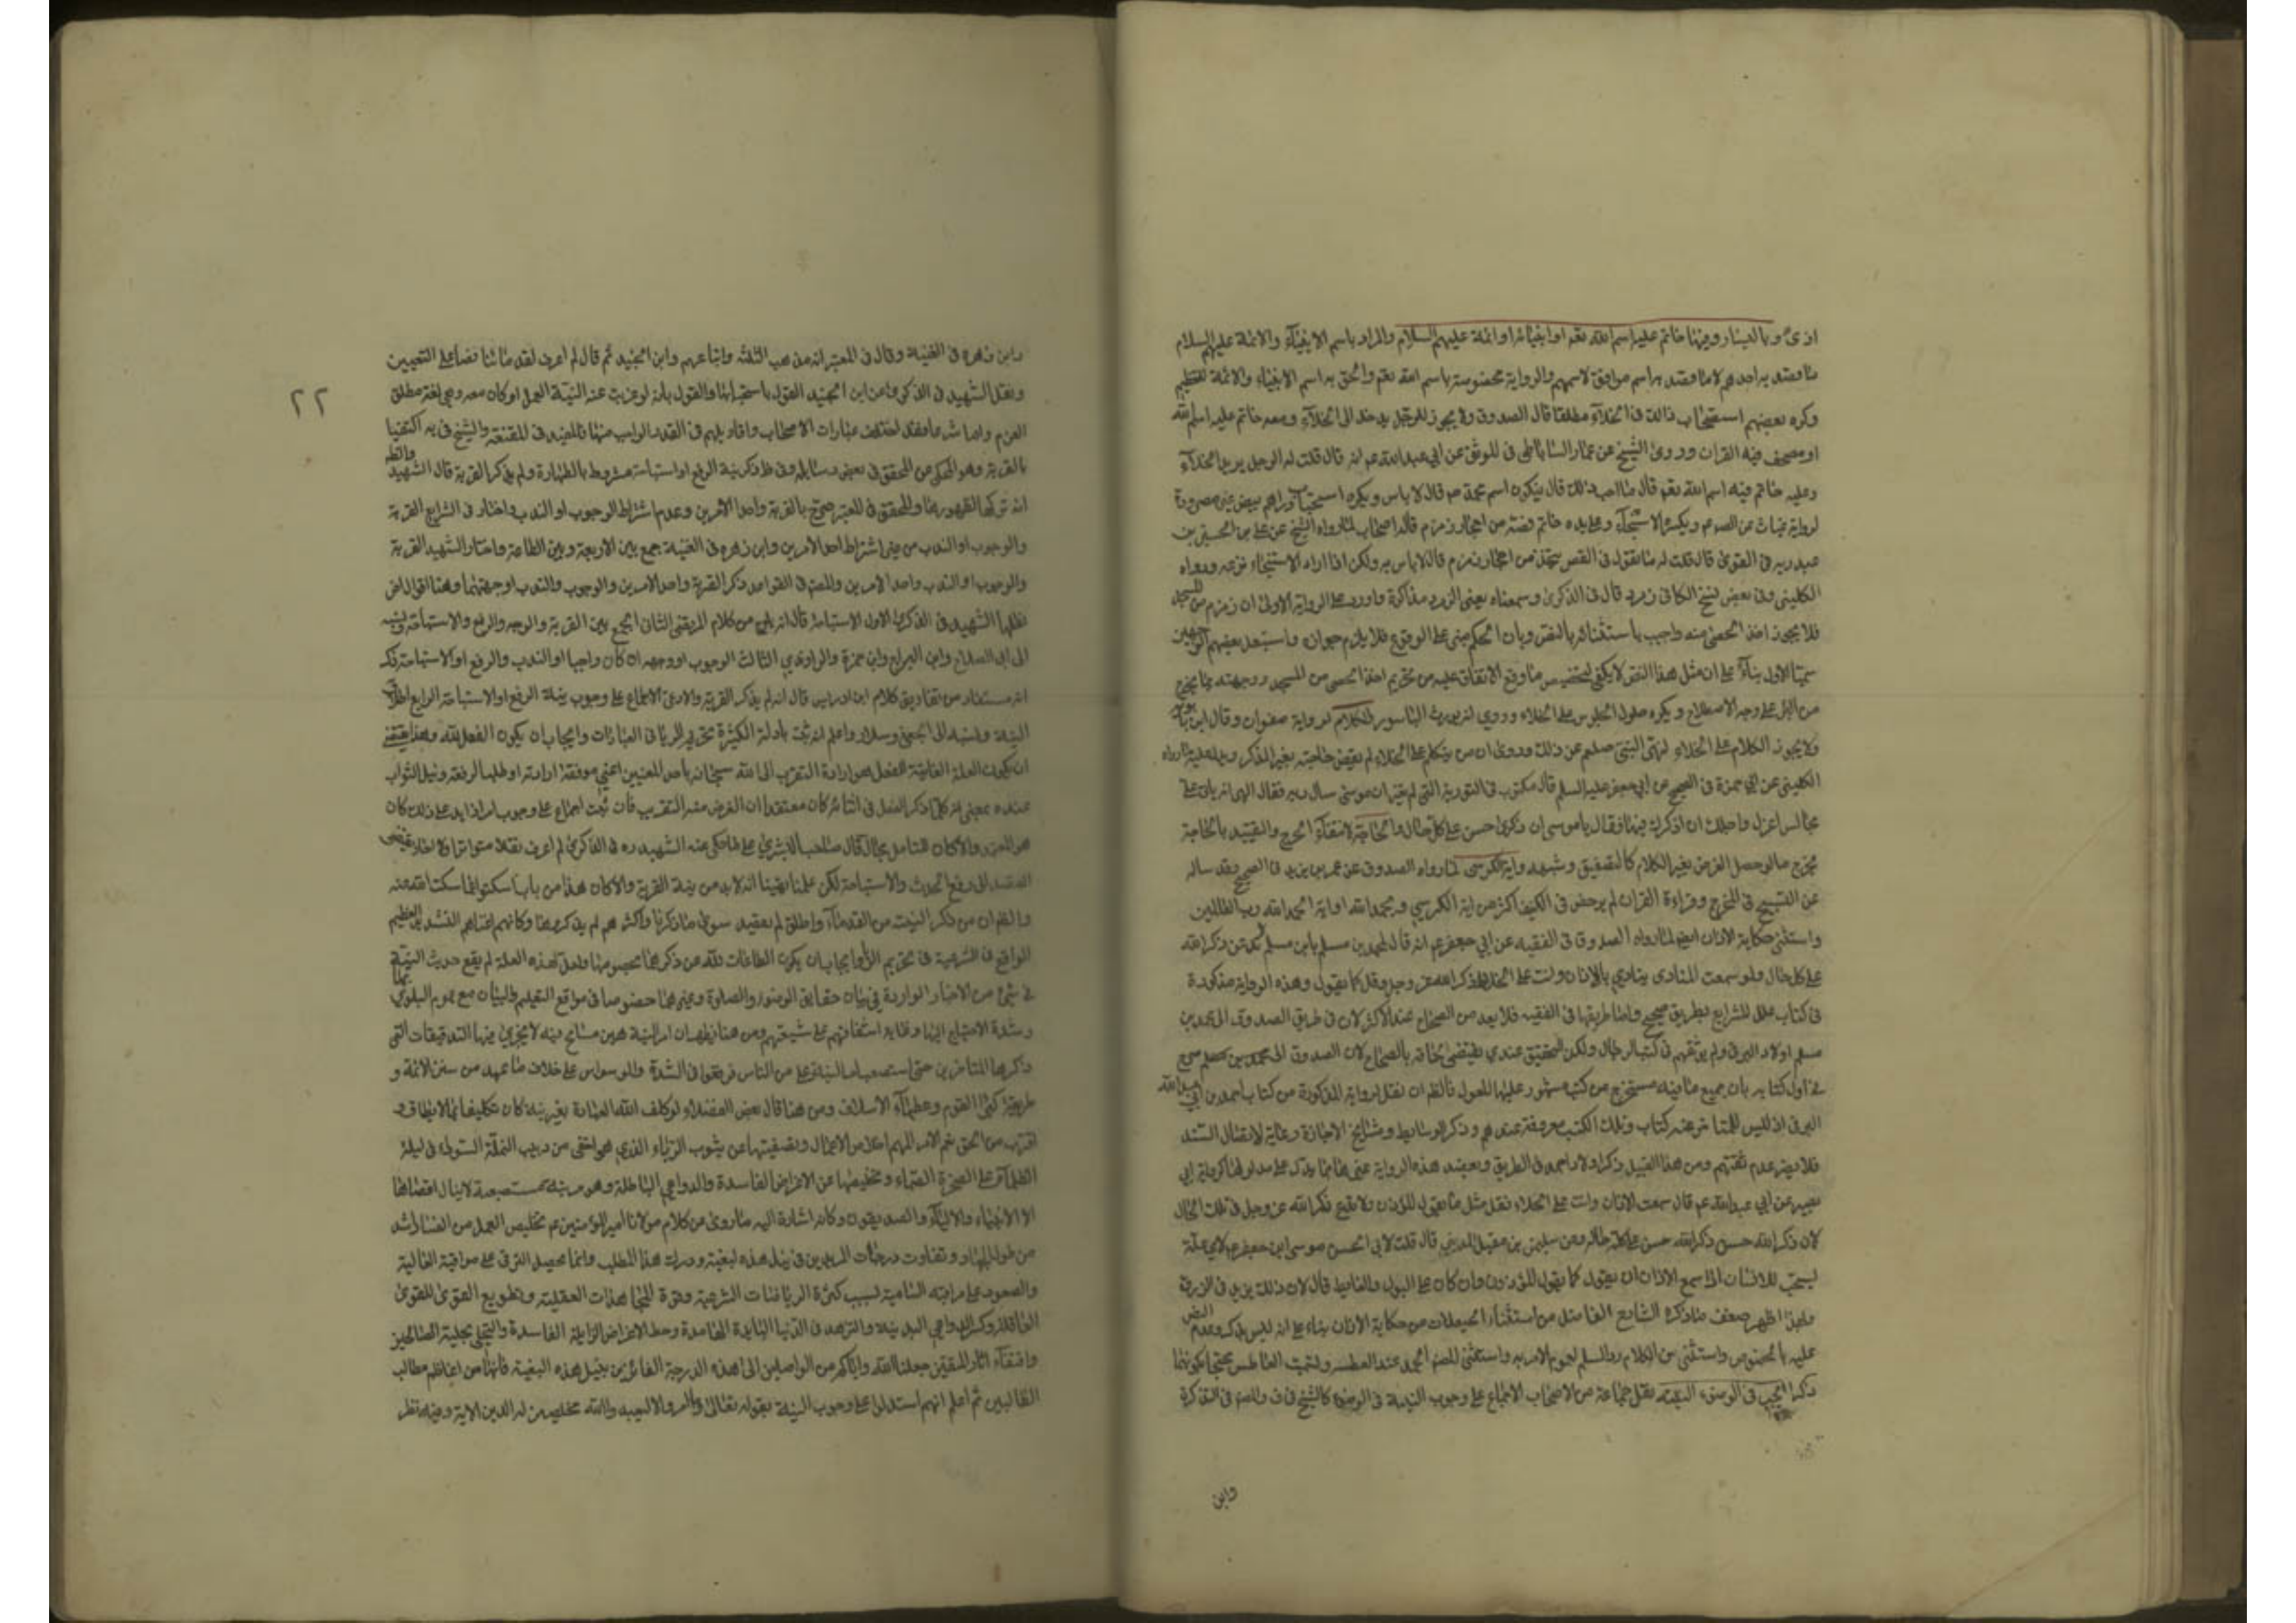 وباليسار وفيها خاتم عليه اسم الله تعم او انبيائه او ائمة عليهم السلام والمراد باسم الانبياء والائمة عليهم السلام
ما قصد به احدهم لا ما قصد به اسم موافق لاسمهم والرواية مخصوصة باسم الله تعم والحق به اسم الانبياء والائمة للتعظيم
وكره بعضهم استصحاب ذالك فى الخلآء مطلقا قال الصدوق ولا يجوز للرجل ان يدخل الى الخلآء ومعه خاتم عليه اسم الله
او مصحف فيه القران وروى الشيخ عن عمار الساباطى فى الموثق عن ابي عبد الله عم انه قال قلت له الرجل يريد الخلآء
وعليه خاتم فيه اسم الله تعم قال ما احب ذلك قال فيكون اسم محمد صم قال لا باس ويكره استصحاب دراهم بيض غير مصرورة
لرواية غياث عن الصوم ويكره الاستنجآء وعلى يده خاتم فصه من احجار زمزم قاله اصحاب لما رواه الشيخ عن على بن الحسين بن
عبد ربه فى القوى قال قلت له ما تقول فى الفص يتخذ من احجار زمزم قال لا باس به ولكن اذا اراد الاستنجاء نزعه ورواه
الكلينى وفى بعض نسخ الكافى زمرد قال فى الذكرى وسمعناه يعنى الزمرد مذاكرة واورد على الرواية الاولى ان زمزم من المسجد
فلا يجوز اخذ الحصى منه واجيب باستثنائه بالنص وبان الحكم مبنى على الوقوع فلا يلزم جوازه واستبعد بعضهم الوجهين
سيما الاول بناءً على ان مثل هذا النص لا يكفى لتخصيص ما وقع الاتفاق عليه من تحريم اخذ الحصى من المسجد ووجهته بما يخرج
من البئر على وجه الاصطلاح ويكره طول الجلوس على الخلاء وروي انه يورث الباسور والكلام لرواية صفوان وقال ابن بابويه
ولا يجوز الكلام على الخلاء لنهى النبى صلعم عن ذلك وروى ان من تكلم على الخلاء لم تقض حاجته بغير الذكر ويدل عليه ما رواه
الكلينى عن ابي حمزة فى الصحيح عن ابي جعفر عليه السلم قال مكتوب فى التورية التى لم تغير ان موسى سال ربه فقال الهى انه ياتى على
مجالس اعزك واجلك ان اذكرك فيها فقال يا موسى ان ذكرى حسن على كل حال والحاجة لانتفآء الحرج والتقييد بالحاجة
يخرج ما لو حصل الغرض بغير الكلام كالتصفيق وشبهه واية الكرسى لما رواه الصدوق عن عمر بن يزيد فى الصحيح وقد ساله
عن التسبيح فى المخرج وقراءة القران لم يرخص فى الكنيف اكثر من اية الكرسي ويحمد الله او اية الحمد لله رب العالمين
واستثنى حكاية الاذان ايضا لما رواه الصدوق فى الفقيه عن ابي جعفر عم انه قال لمحمد بن مسلم يا بن مسلم لا تدعن ذكر الله
على كل حال ولو سمعت المنادى ينادي بالاذان وانت على الخلا فاذكر الله عز وجل وقل كما يقول وهذه الرواية مذكورة
فى كتاب علل الشرايع بطريق صحيح واما طريقها فى الفقيه فلا يعد من الصحاح عند الاكثر لان فى طريق الصدوق الى محمد بن
مسلم اولاد البرقى ولم يوثقهم فى كتب الرجال ولكن التحقيق عندي يقتضى الحاقه بالصحاح لان الصدوق الى محمد بن مسلم صرح
فى اول كتابه بان جميع ما فيه مستخرج من كتب مشهور عليها المعول فالظ ان نقل الرواية المذكورة من كتاب احمد بن ابى عبد الله
البرقى اذ ليس للمتاخر عنه كتاب وتلك الكتب معروفة عندهم وذكر الوسايط ومشايخ الاجازة رعاية لاتصال السند
فلا يضر عدم ثقتهم ومن هذا القبيل ذكر اولاد احمد فى الطريق ويعضد هذه الرواية غيرها مما يدل على مدلولها كرواية ابي
بصير عن ابي عبد الله عم قال سمعت الاذان وانت على الخلاء فقل مثل ما يقول المؤذن ولا تدع ذكر الله عز وجل فى تلك الحال
لان ذكر الله حسن ذكر الله حسن على كل حال وعن سليمن بن مقبل المديني قال قلت لابي الحسن موسى ابن جعفر عم لاي علة
يستحب للانسان اذا سمع الاذان ان يقول كما يقول المؤذن وان كان على البول والغايط قال لان ذلك يزيد فى الرزق
وبهذا اظهر ضعف ما ذكره الشارح الفاضل من استثناء الحيعلات من حكاية الاذان بناء على انه ليس بذكر وعدم النص
عليه بالخصوص واستثنى من الكلام رد السلم لعموم الامر به واستثنى المصم الحمد عند العطسه وتسميت العاطس محتجا بكونهما
ذكرا يجب فى الوضوء النية نقل جماعة من الاصحاب الاجماع على وجوب النية فى الوضوء كالشيخ فى ف والمصم فى التذكرة
وابن
٢٢
وابن زهره فى الغنية وقال فى المعتبر انه مذهب الثلثه واتباعهم وابن الجنيد ثم قال لم اعرف لقدمائنا نصا على التعيين
ونقل الشهيد فى الذكرى عن ابن الجنيد القول باستحبابها والقول بانه لو عزبت عنه النية العمل او كان معه وهى لغة مطلق
العزم واختلف عبارات الاصحاب واقاويلهم فى القدر الواجب منها فالمفيد فى المقنعة والشيخ فى يه اكتفيا
بالقربة وهو المحكى عن المحقق فى بعض رسايله وفى ط ذكر نية الرفع او استباحة مشروط بالطهارة ولم يذكر القربة قال الشهيد والظ
انه تركها لظهورها والمحقق فى المعتبر صرح بالقربة واحد الامرين وعدم اشتراط الوجوب او الندب واختار فى الشرايع القربة
والوجوب او الندب من غير اشتراط احد الامرين وابن زهره فى الغنية جمع بين الاربعة وبين الطاعة واختار الشهيد القربة
والوجوب او الندب واحد الامرين والمصم فى القواعد ذكر القربة واحد الامرين والوجوب والندب او جهتهما وهنا اقوال اخر
نقلها الشهيد فى الذكرى الاول الاستباحة قال انه يلوح من كلام المرتضى الثانى الجمع بين القربة والوجه والرفع والاستباحة ونسبه
الى ابى الصلاح وابن البراج وابن حمزة والراوندي الثالث الوجوب او وجهه ان كان واجبا او الندب والرفع او الاستباحة ذكر
انه مستفاد من تفاريق كلام ابن ادريس قال انه لم يذكر القربة وادعى الاجماع على وجوب نية الرفع او الاستباحة الرابع اطلاق
النية ونسبه الى الجعفى وسلار واعلم انه ثبت بادلة الكثيرة تحريم الريا فى العبادات وايجاب ان يكون الفعل لله وهذا يقتضى
ان يكون العلة الغائية للفعل هو ارادة التقرب الى الله سبحانه باحد المعنيين اعنى موافقة ارادته او طلب الرفعة ونيل الثواب
عنده بمعنى انه كلما ذكر الفعل فى اثنائه كان معتقدا ان الغرض منه التقرب فان ثبت اجماع على وجوب امر زايد على ذلك كان
هو المتبع والا كان للتامل مجال قال صاحب البشرى على ما حكى عنه الشهيد ره فى الذكرى لم اعرف نقلا متواترا ولا احادا يقتضى
القصد الى رفع الحدث والاستباحة لكن علمنا يقينا انه لا بد من نية القربة والا كان هذا من باب اسكتوا عما سكت الله عنه
والظ ان من ذكر النيت من القدماء واطلق لم يقصد سوى ما ذكرنا واكثرهم لم يذكروها وكانهم اغناهم التشديد العظيم
الواقع فى الشرعية فى تحريم الريا وايجاب ان يكون الطاعات لله عن ذكرها بخصوصها ولعل لهذه العلة لم يقع حديث النية
فى شئ من الاخبار الواردة فى بيان حقايق الوضوء والصلوة وغيرهما خصوصا فى مواقع التعليم والبيان مع عموم البلوى بها
وشدة الاحتياج اليها وغاية اشفاقهم على شيعتهم ومن هنا يظهر ان امر النية هين مسامح فيه لا يجزي فيها التدقيقات التى
ذكرها المتاخرين حتى استصعب امر النية على من الناس فوقعوا فى الشدة والوسواس على خلاف ما عهد من سنن الائمة و
طريقة كبرا القوم وعظمآء الاسلاف ومن هنا قال بعض الفضلاء لو كلف الله العبادة بغير نية كان تكليفا بما لا يطاق و
اقترب من الحق نعم الامر المهم اخلاص الاعمال وتصفيتها عن شوب الرياء الذي هو اخفى من دبيب النملة السوداء فى ليلة
الظلمآء على الصخرة الصماء وتخليصها عن الاغراض الفاسدة والدواعي الباطلة وهو مرتبة مستصعبة لا ينال اقصاها
الا الانبياء والاوليآء والصديقون وكان اشارة اليه ما روى من كلام مولانا امير المؤمنين عم تخليص العمل من الفساد اشد
من طول الجهاد وتفاوت درجات المريدين فى نيل هذه البغية ودرك هذا المطلب وانما يحصل الترقى على مراقيه العالية
والصعود على مراتبه السامية بسبب كثرة الرياضات الشرعية وقوة المجاهدات العقلية وتطويع القوى للقوى
العاقلة وكسر الدواعي البدنية والزهد فى الدنيا البايدة الفاسدة وحط الاغراض الزايلة الفاسدة والتحلى بحلية الصالحين
واقتفآء اثار المتقين جعلنا الله واياكم من الواصلين الى هذه الدرجة الفائزين بنيل هذه البغية فانها من اعاظم مطالب
الطالبين ثم اعلم انهم استدلوا على وجوب النية بقوله تعالى وما امروا الا ليعبدوا الله مخلصين له الدين الاية وفيه نظر